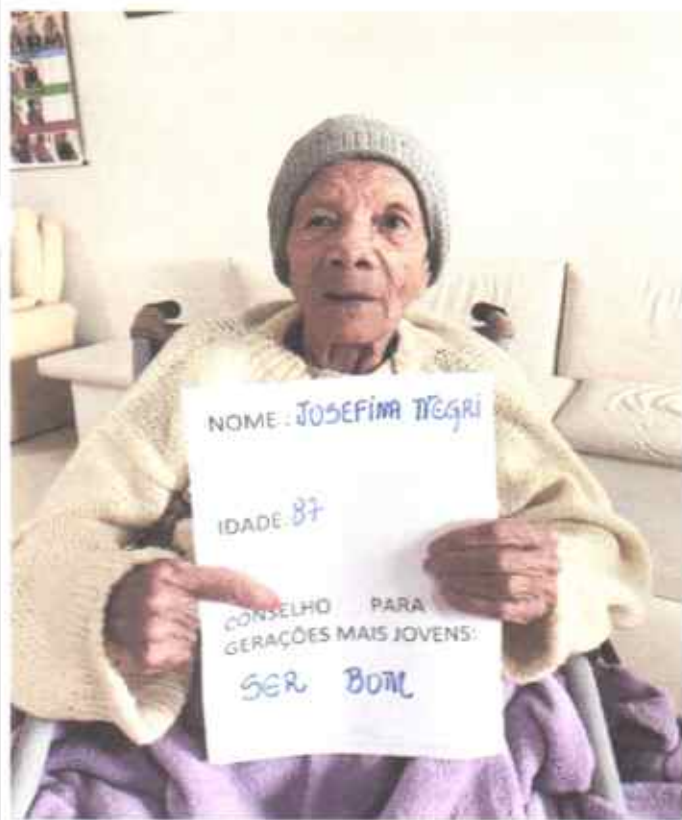 NOME : JOSEFINA NEGRI
IDADE: 87
CONSELHO PARA
GERAÇÕES MAIS JOVENS:
SER BOM